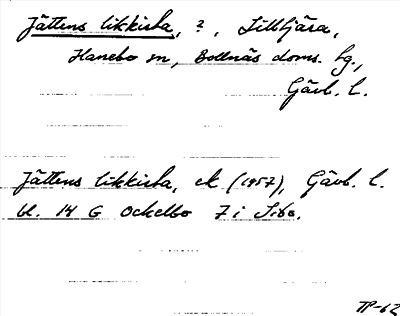 Jättens likkista, ?, Lilltjära,
Hanebo sn, Bollnäs doms. hg.,
Gävl. l.
Jättens likkista, ek (1957), Gävl. l.
bl. 14 G Ockelbo 7 i
TP-62